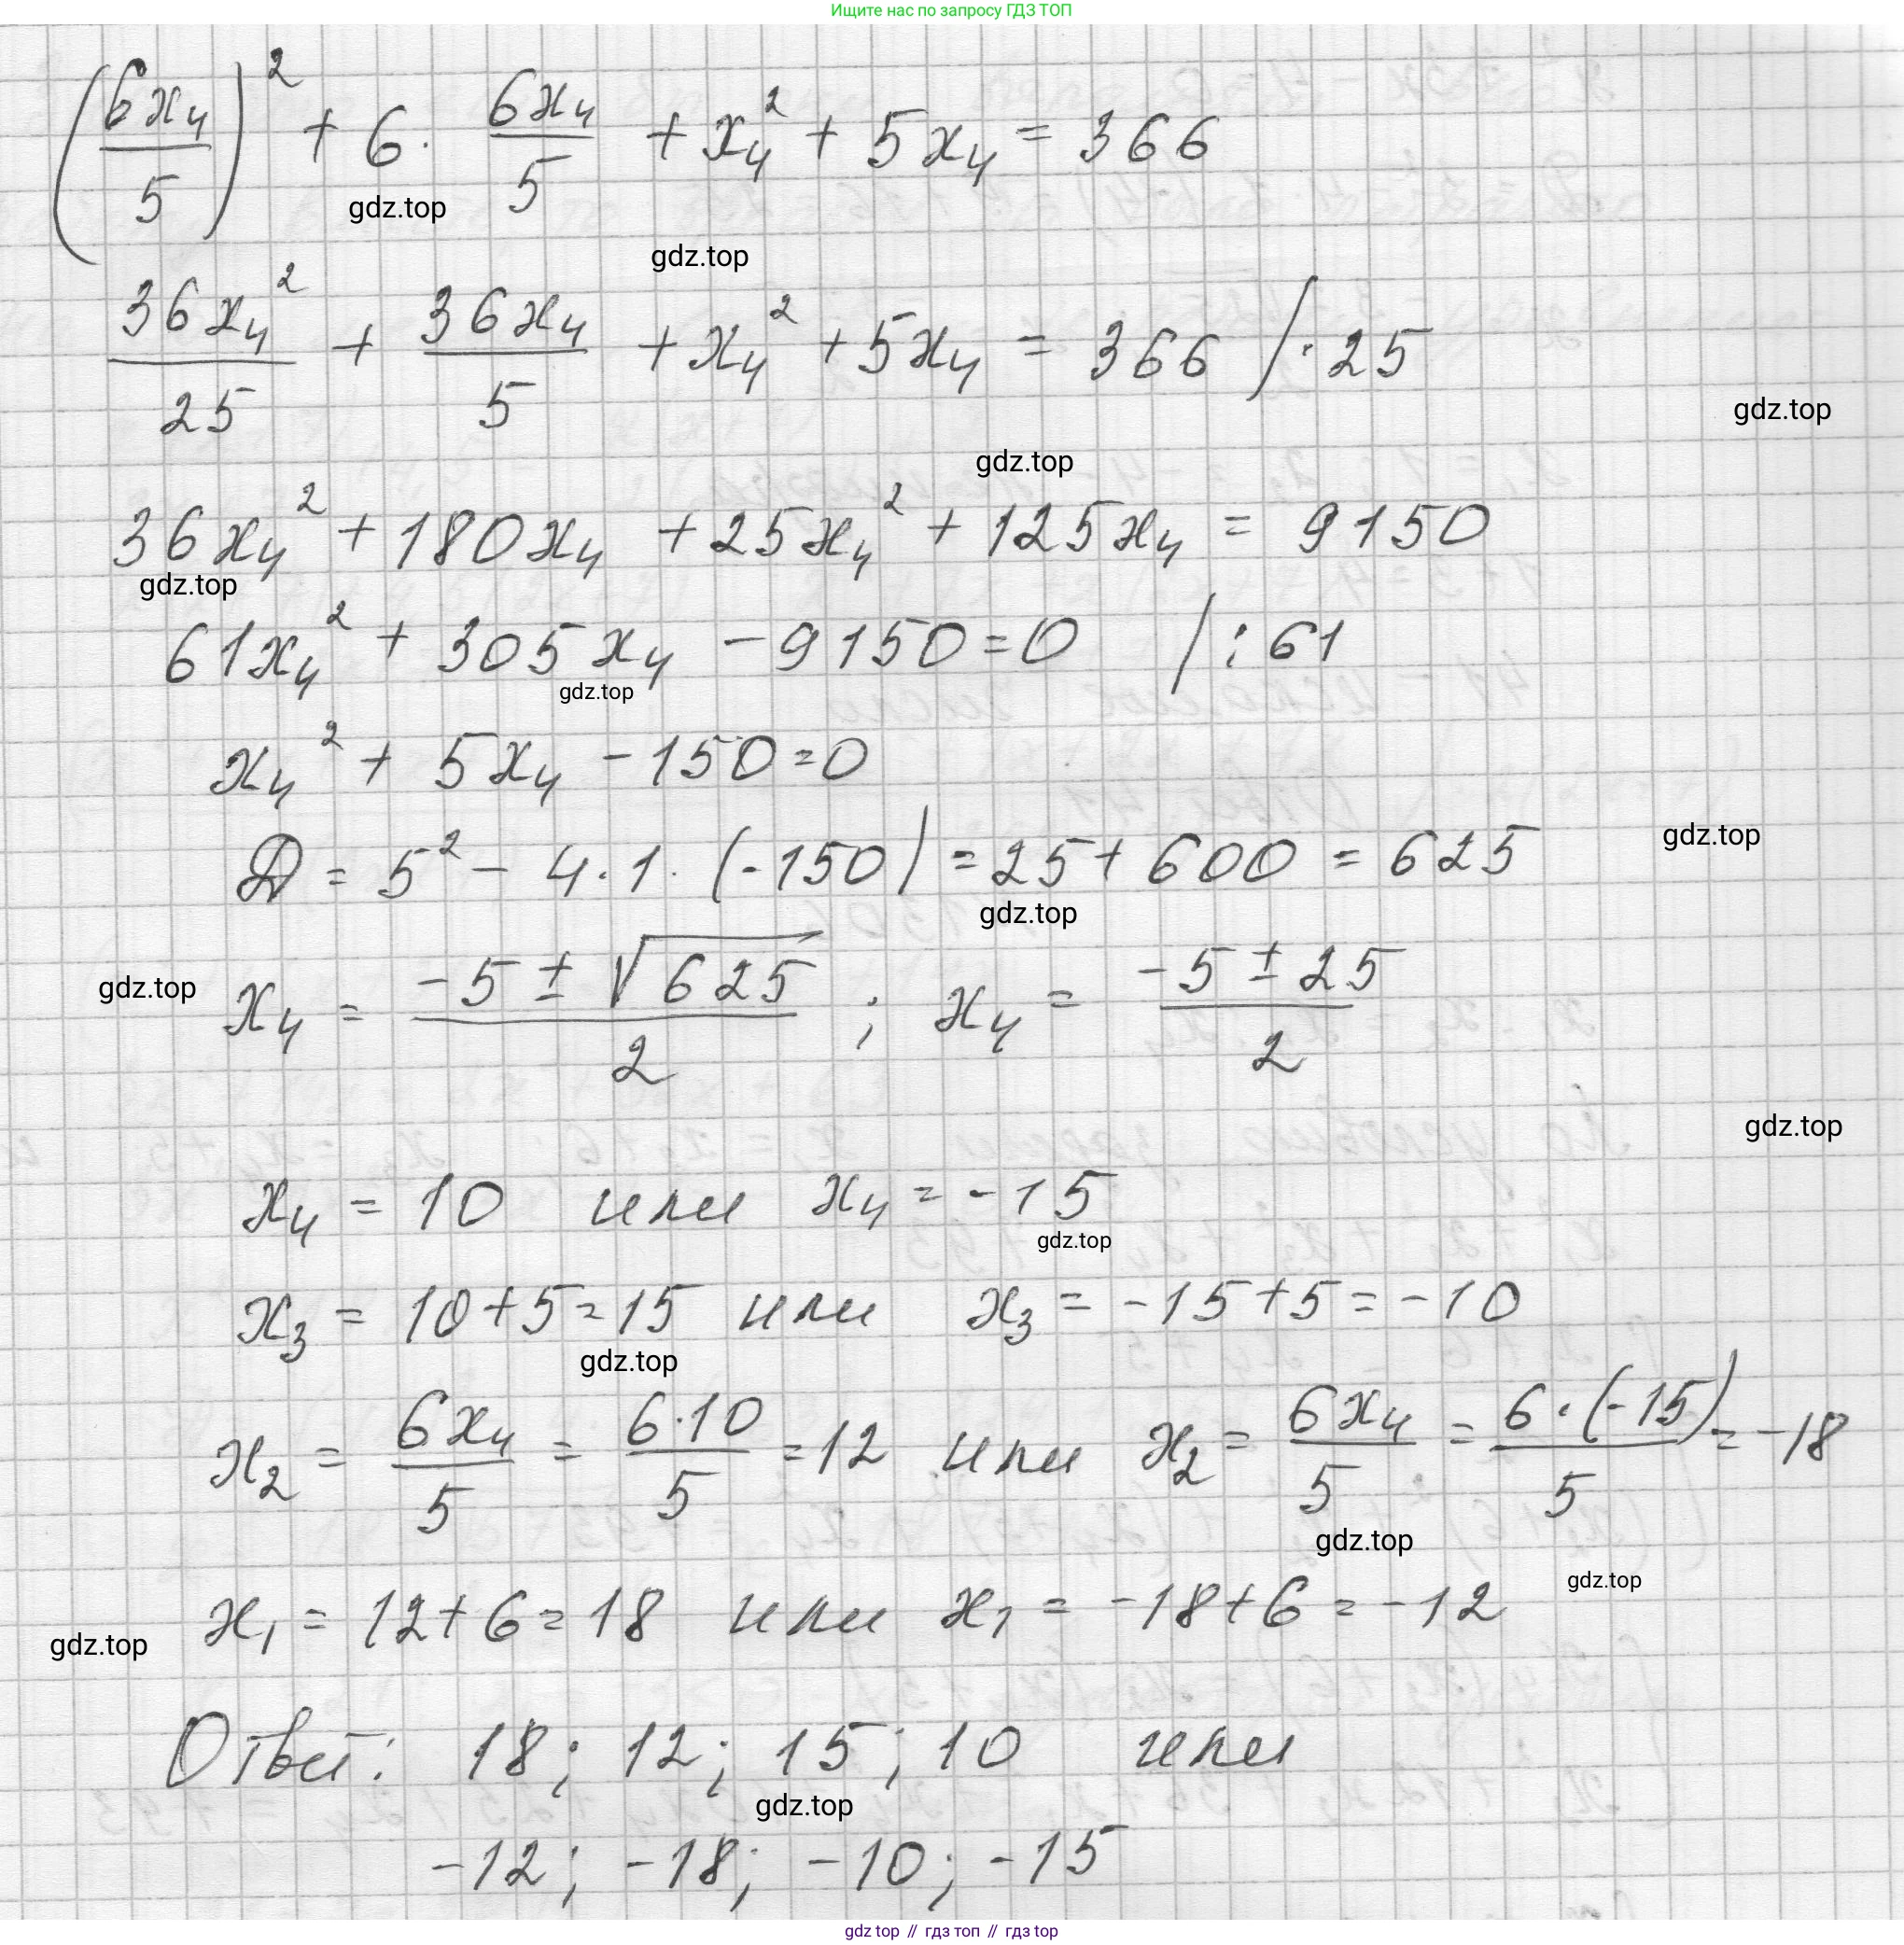 Ищите нас по запросу ГДЗ ТОП
(6x₄/5)² + 6 · 6x₄/5 + x₄² + 5x₄ = 366
gdz.top
gdz.top
36x₄²/25 + 36x₄/5 + x₄² + 5x₄ = 366 / · 25
gdz.top
gdz.top
36x₄² + 180x₄ + 25x₄² + 125x₄ = 9150
gdz.top
61x₄² + 305x₄ - 9150 = 0 / : 61
gdz.top
x₄² + 5x₄ - 150 = 0
D = 5² - 4 · 1 · (-150) = 25 + 600 = 625
gdz.top
gdz.top
gdz.top
x₄ = (-5 ± √625)/2 ; x₄ = (-5 ± 25)/2
gdz.top
x₄ = 10 или x₄ = -15
gdz.top
x₃ = 10 + 5 = 15 или x₃ = -15 + 5 = -10
gdz.top
x₂ = 6x₄/5 = 6·10/5 = 12 или x₂ = 6x₄/5 = 6·(-15)/5 = -18
gdz.top
gdz.top
x₁ = 12 + 6 = 18 или x₁ = -18 + 6 = -12
gdz.top
Ответ: 18; 12; 15; 10 или
gdz.top
-12; -18; -10; -15
gdz top // гдз топ // гдз top